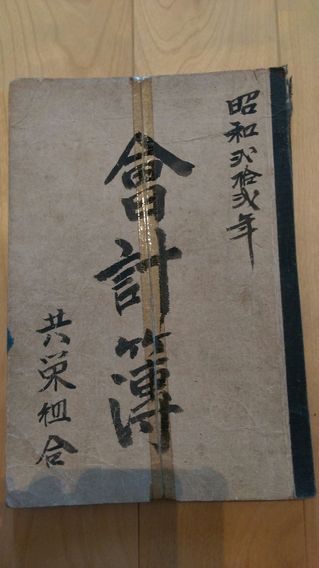 昭和弐拾弐年
會計簿
共栄組合